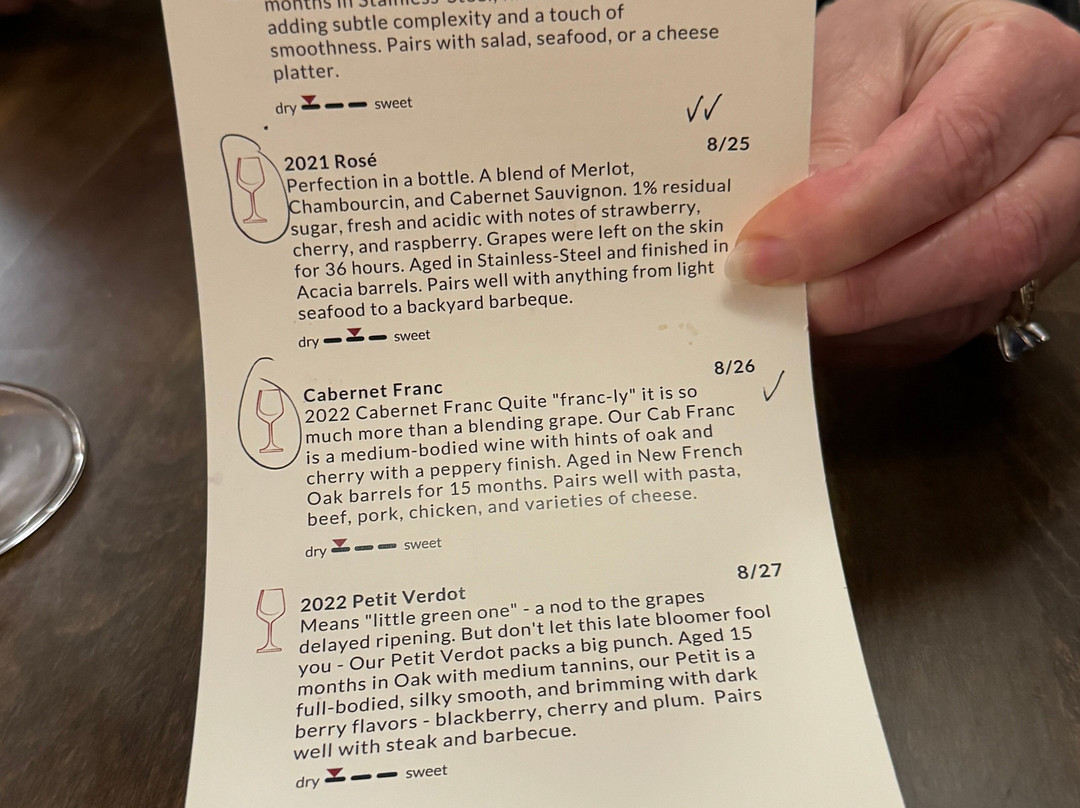 months in Stainless
adding subtle complexity and a touch of
smoothness. Pairs with salad, seafood, or a cheese
platter.
dry sweet
8/25
2021 Rosé
Perfection in a bottle. A blend of Merlot,
Chambourcin, and Cabernet Sauvignon. 1% residual
sugar, fresh and acidic with notes of strawberry,
cherry, and raspberry. Grapes were left on the skin
for 36 hours. Aged in Stainless-Steel and finished in
Acacia barrels. Pairs well with anything from light
seafood to a backyard barbeque.
dry sweet
8/26
Cabernet Franc
2022 Cabernet Franc Quite "franc-ly" it is so
much more than a blending grape. Our Cab Franc
is a medium-bodied wine with hints of oak and
cherry with a peppery finish. Aged in New French
Oak barrels for 15 months. Pairs well with pasta,
beef, pork, chicken, and varieties of cheese.
dry sweet
8/27
2022 Petit Verdot
Means "little green one" - a nod to the grapes
delayed ripening. But don't let this late bloomer fool
you - Our Petit Verdot packs a big punch. Aged 15
months in Oak with medium tannins, our Petit is a
full-bodied, silky smooth, and brimming with dark
berry flavors - blackberry, cherry and plum. Pairs
well with steak and barbecue.
dry sweet